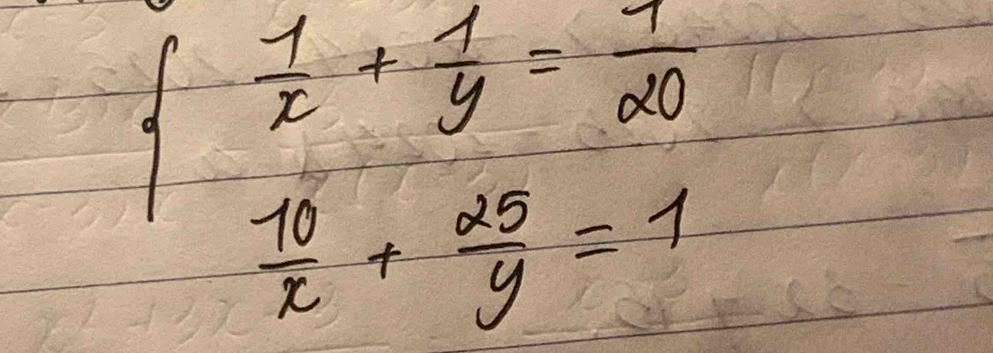 { 1/x + 1/y = 1/20
10/x + 25/y = 1